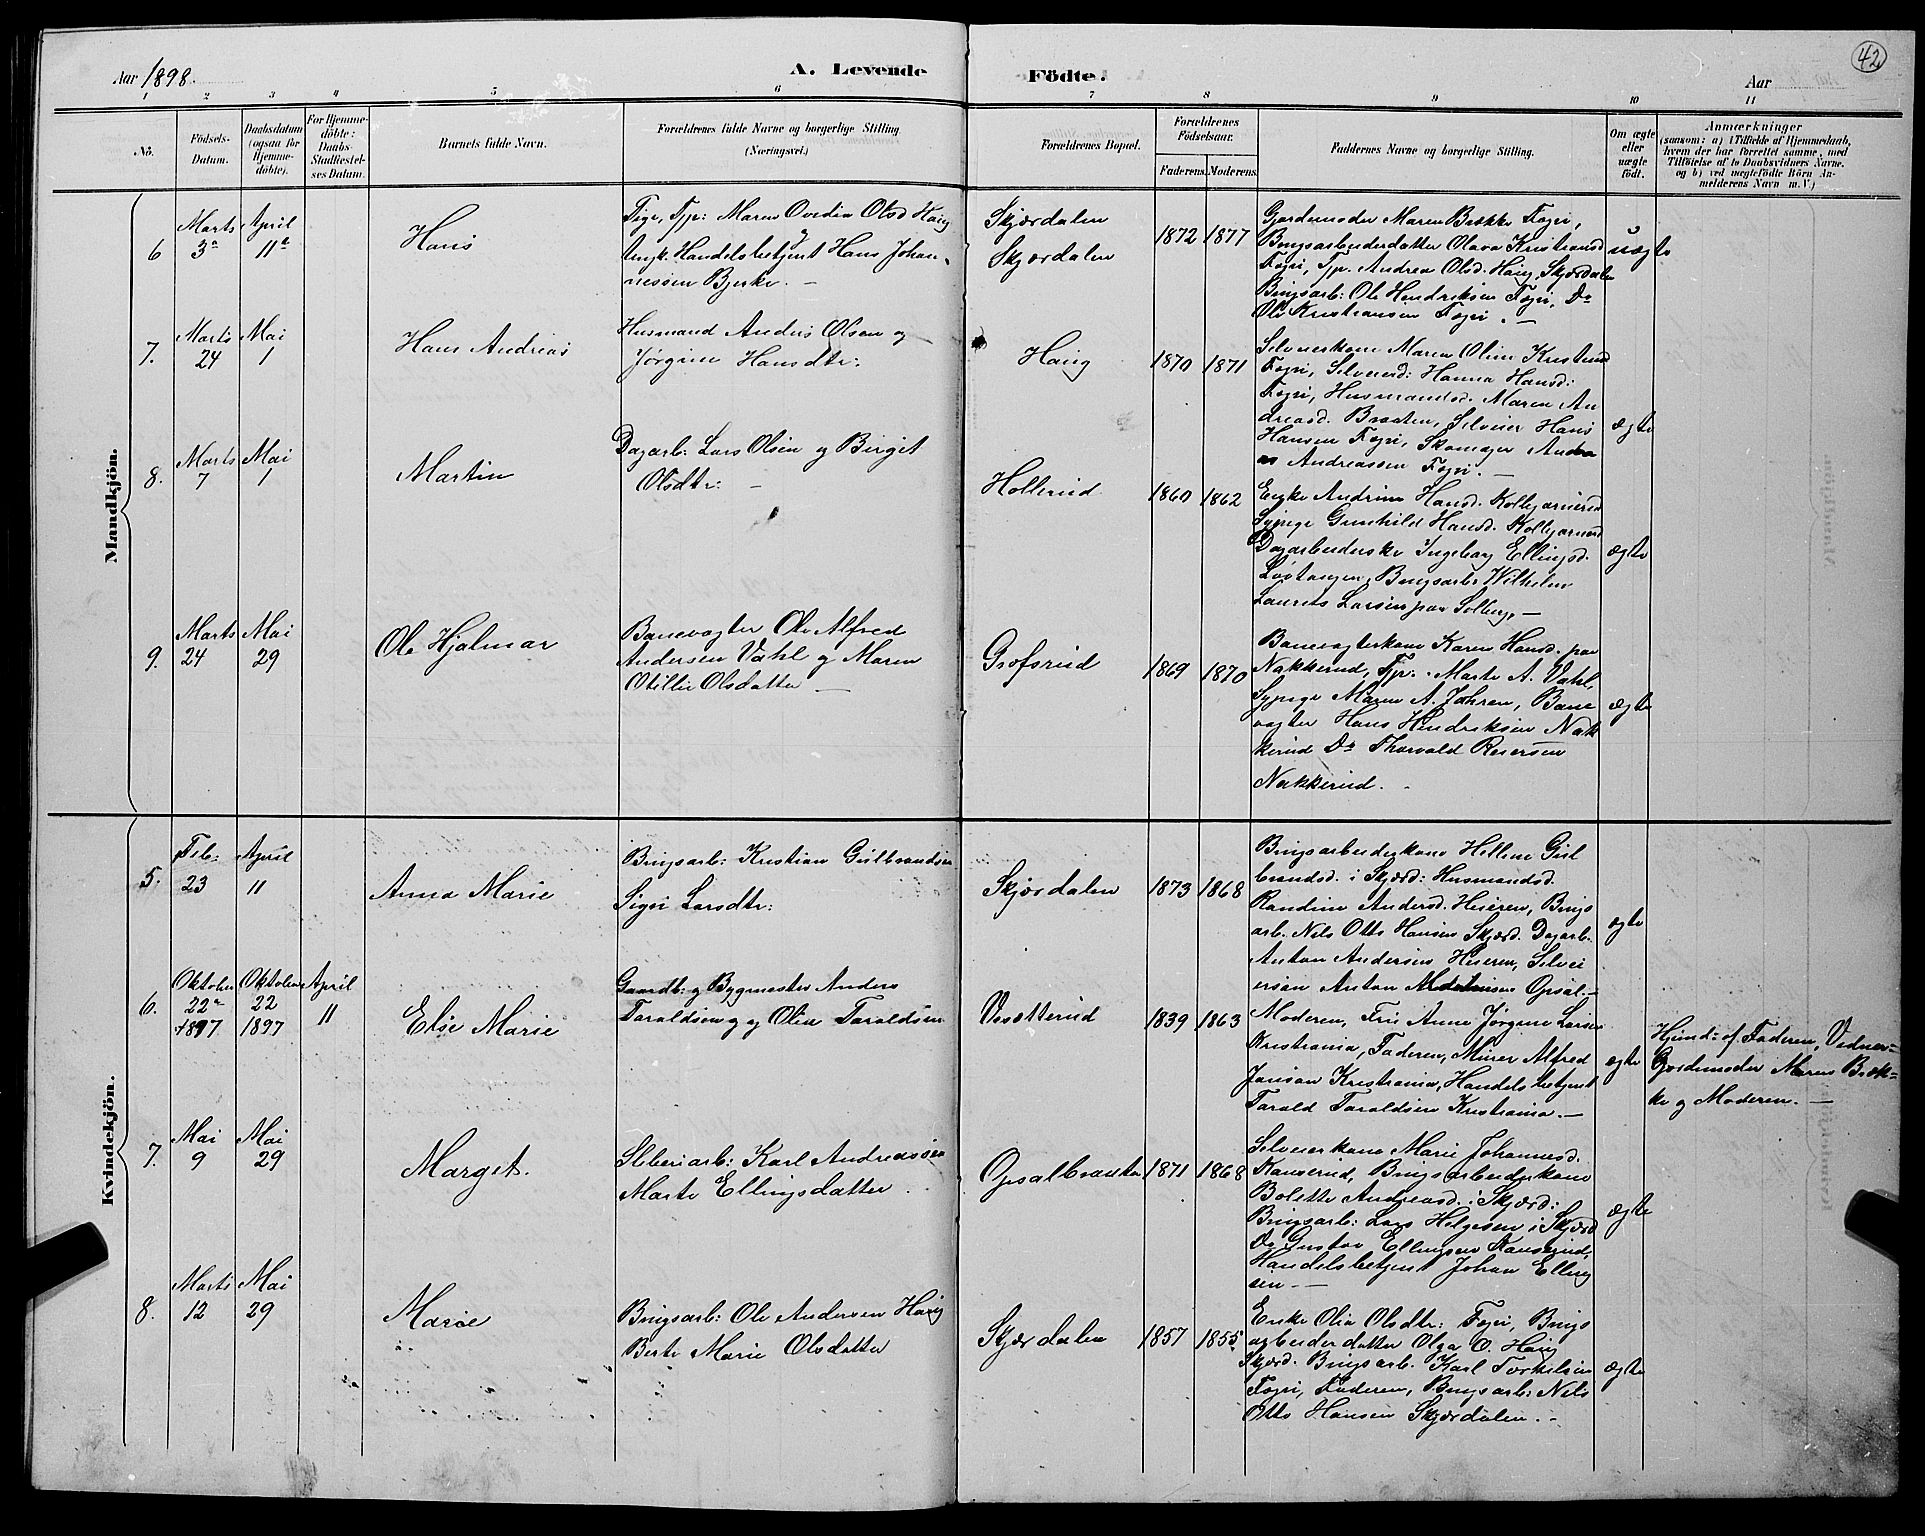 42
Aar 1898.
A. Levende Födte.
Aar
1 2 3 4 5 6 7 8 9 10 11
Nö.
Födsels-Datum.
Daabsdatum (ogsaa for Hjemme-döbte).
For Hjemme-döbte: Daabs-Stadfæstel-ses Datum.
Barnets fulde Navn.
Forældrenes fulde Navne og borgerlige Stilling (Næringsvei.)
Forældrenes Bopæl.
Forældrenes Födselsaar.
Faderens. Moderens.
Faddernes Navne og borgerlige Stilling.
Om ægte eller uægte födt.
Anmærkninger
(saasom: a) i Tilfælde af Hjemmedaab, hvem der har forrettet samme, med Tilföielse af to Daabsvidners Navne, og b) ved uægtefödte Börn Anmelderens Navn m. V.)
Mandkjön.
6
Marts 3die
April 11te
Hans
Pige, Tjp: Maren Ovedia Olsd Haug
Ungk. Handelsbetjent Hans Johan-
nessen Bjerke. —
Skjærdalen
Skjærdalen
1872 1877
Gjordemoder Maren Bække Fogri,
Brugsarbeiderdatter Olava Kristiansd
Fogri, Tjp. Andrea Olsd. Haug, Skjærdalen
Brugsarb: Ole Hendriksen Fogri, Do
Ole Kristiansen Fogri. —
uægte
7.
Marts 24
Mai 1
Hans Andreas
Husmand Anders Olsen og
Jørgine Hansdtr:
Haug
1870 1871
Selveierkone Maren Oline Kristiansd
Fogri, Selveierd: Hanna Hansd:
Fogri, Husmandsd. Maren An
dreasd. Braaten, Selveier Hans
Hansen Fogri, Skomager Andre
as Andreassen Fogri. —
ægte
8.
Marts 7
Mai 1
Martin
Dagarb: Lars Olsen og Birgit
Olsdtr: —
Hollerud
1860 1862
Enke Andrine Hansd.
Sypige Gunhild Hansd.
Dagarbeiderske Ingeborg Ellingsd.
Løvtangen, Brugsarb: Wilhelm
Laurits Larsen paa Solberg. —
ægte
9.
Marts 24
Mai 29
Ole Hjalmar
Banevogter Ole Alfred
Andersen Vahl og Maren
Otillie Olsdatter —
Grøfsrud
1869 1870
Banevogterkone Karen Hansd. paa
Nakkerud, Tjp. Marte A. Vahl,
Sypige Maren A. Johren, Bane
vogter Hans Hendriksen Nak
kerud Do Thorvald Reiersen
Nakkerud. -
ægte
Kvindekjön.
5.
Feb: 23
April 11
Anna Marie
Brugsarb: Kristian Gulbrandsen
Sigri Larsdtr:
Skjærdalen
1873 1868
Brugsarbeiderkone Hellene Gul
brandsd. i Skjærd: Husmandsd.
Randine Andersd. Heieren, Brugs
arb. Nils Otto Hansen Skjærd. Dagarb.
Anton Andersen Heieren, Selvei
ersøn Anton Opsal —
ægte
6.
Oktober 22de 1897
Oktober 22 1897
April 11
Else Marie
Gaardb: og Bygmester Anders
Taraldsen og Olia Taraldsen
Vesætterud
1839 1863
Moderen, Frk Anna Jørgine Larsen
Kristiania, Faderen, Murer Alfred
Jonson Kristiania, Handelsbetjent
Tarald Taraldsen Kristiania. —
ægte
Hjemd: af Faderen, Vidner:
Gjordemoder Maren Bæk-
ke og Moderen. —
7.
Mai 9
Mai 29
Marget.
Sliberiarb: Karl Andreassen
Marte Ellingsdatter.
Opsalbraaten
1871 1868
Selveierkone Marie Johannesd.
Fauserud, Brugsarbeiderkone
Bolette Andreasd. i Skjærd:
Brugsarb: Lars Helgesen i Skjærd
Do Gustav Ellingsen Fauserud,
Handelsbetjent Johan Elling
sen. —
ægte
8.
Marts 12
Mai 29
Marie
Brugsarb: Ole Andersen Haug
Berte Marie Olsdatter
Skjærdalen
1857 1855
Enke Olia Olsdtr: Fogri, Brugs
arbeiderdatter Olga O. Haug
Skjærd. Brugsarb. Karl Torkelsen
Fogri, Faderen, Brugsarb: Nils
Otto Hansen Skjærdalen. -
ægte